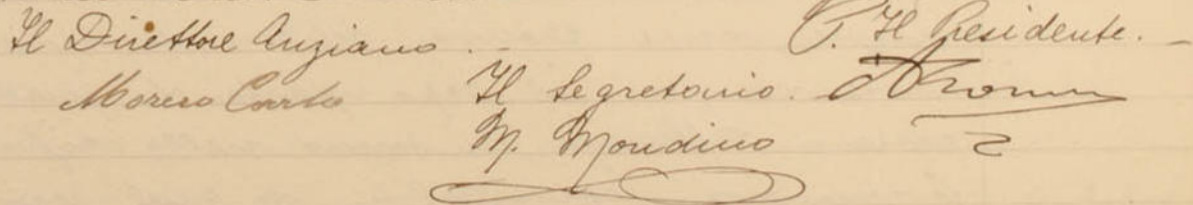 Il Direttore Anziano. -
P. Il Presidente. -
Morero Carlo
Il Segretario.
M. Mondino